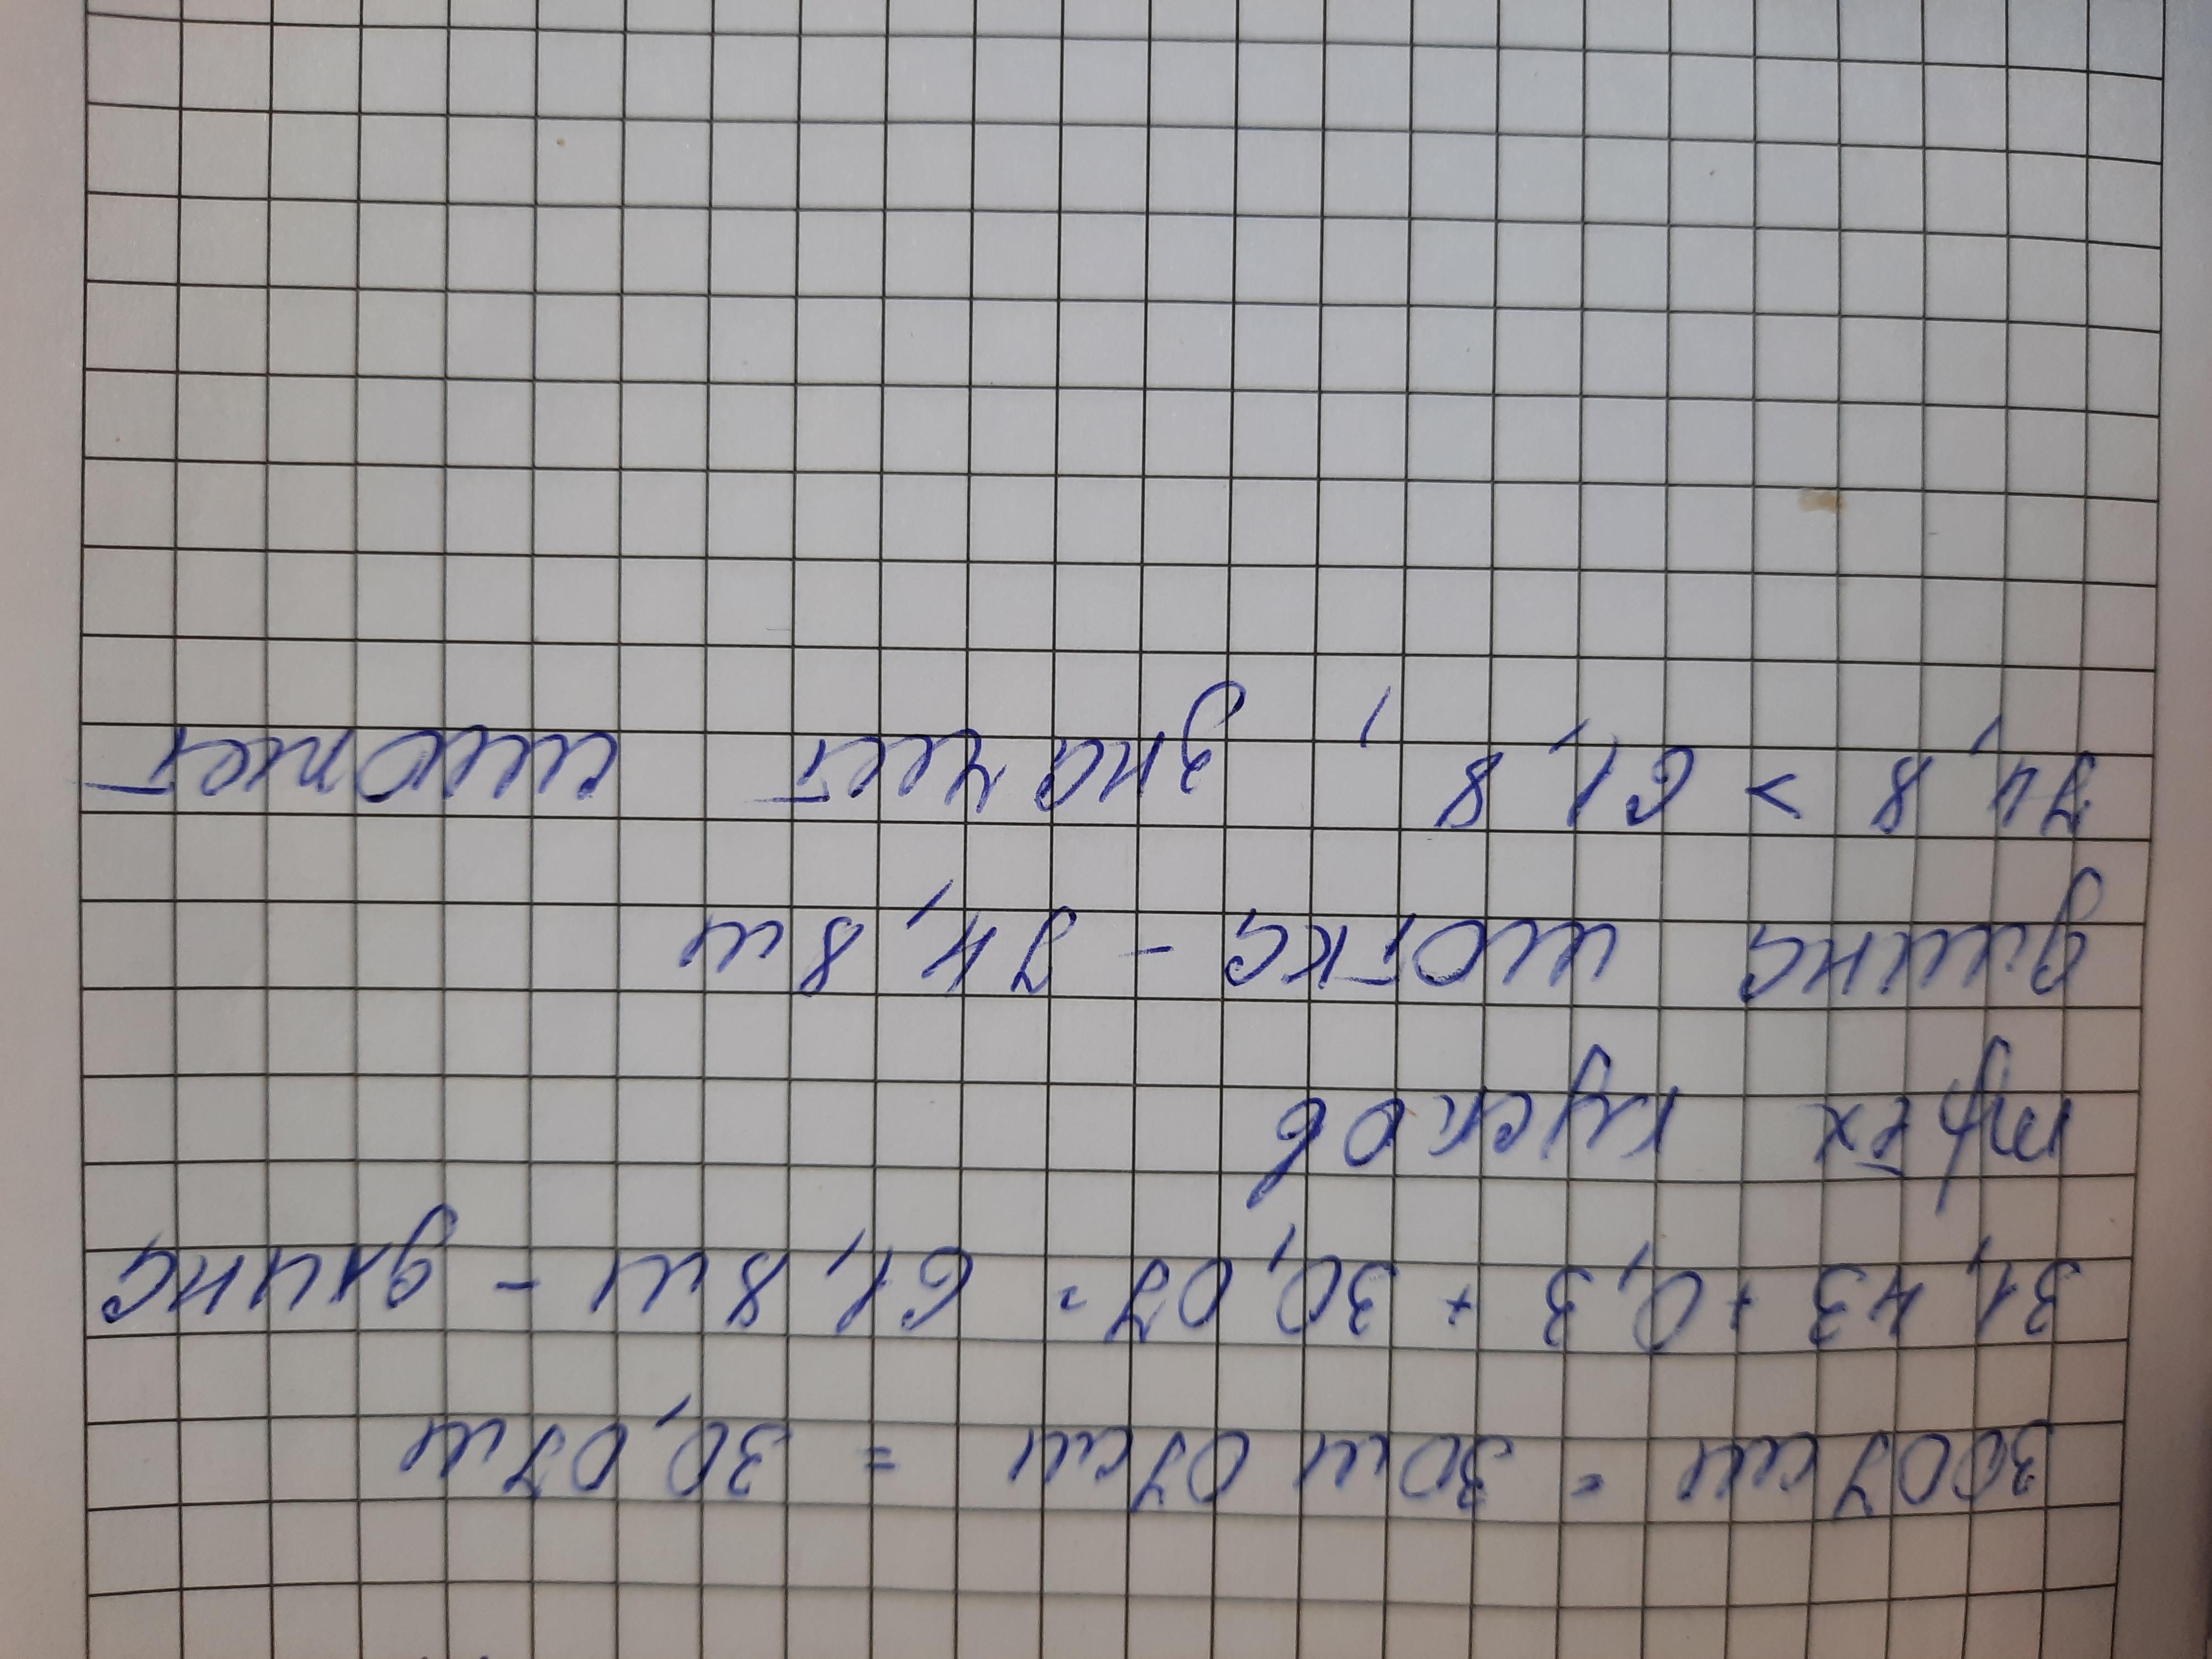 3007см = 30м 07см = 30,07м
31,43 + 0,3 + 30,07 = 61,8м - длина
трёх кусков
длина мотка - 74,8м
74,8 > 61,8, значит может